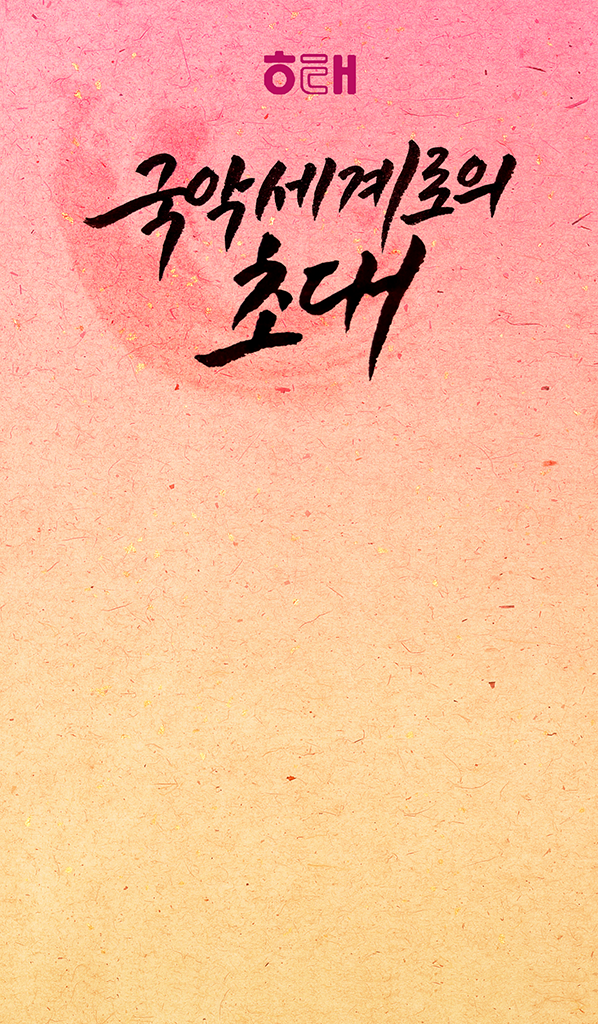 해태
국악세계로의
초대